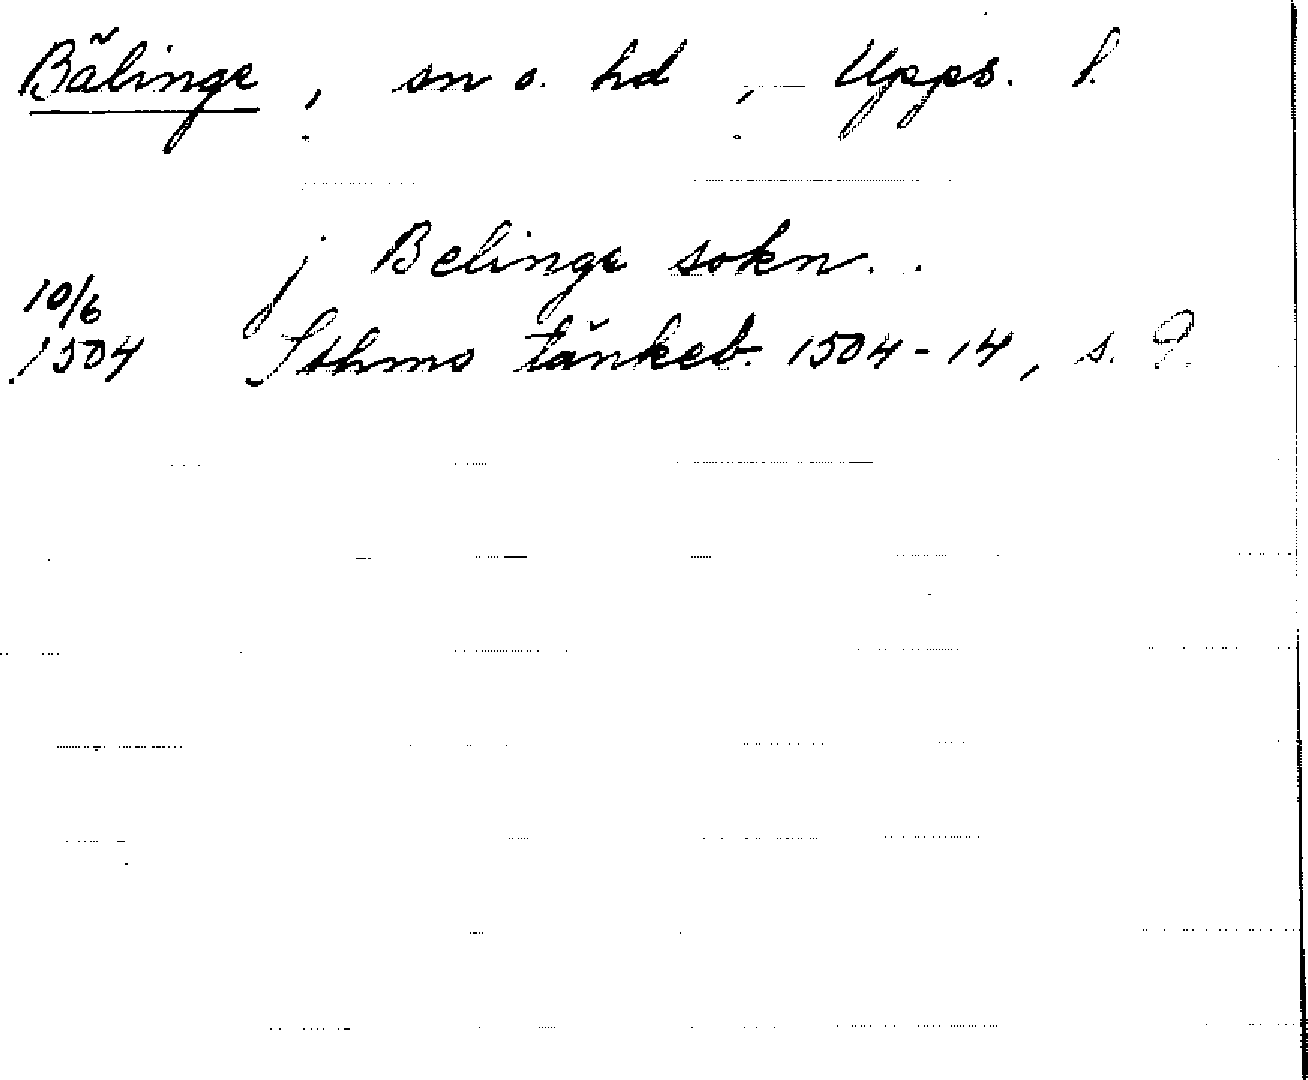 Bälinge, sn o. hd, Upps. l.
j Belinge sokn..
10/6
1504 Sthms tänkeb. 1504-14, s. 9.